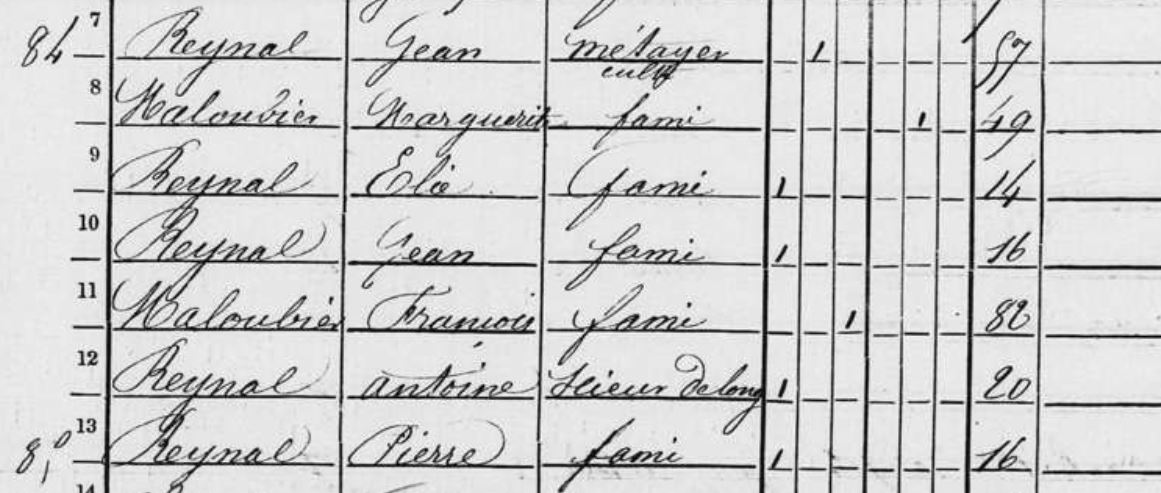 84 7 Reynal Jean métayer 1 57
cult
8 Maloubier Marguerit fami 1 49
9 Reynal Elie fami 1 14
10 Reynal Jean fami 1 16
11 Maloubier Francois fami 1 82
12 Reynal antoine scieur de long 1 20
13 Reynal Pierre fami 1 16
14